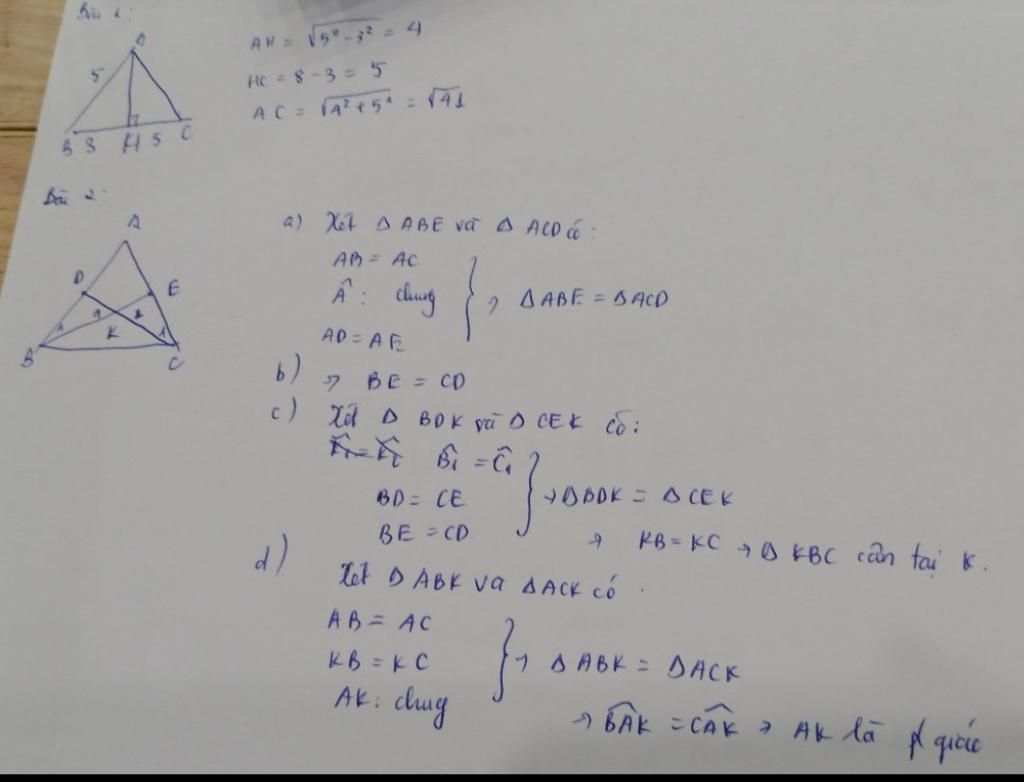 Bài 1:
A
5
B 3 H 5 C
AH = √5² - 3² = 4
HC = 8 - 3 = 5
AC = √4² + 5² = √41
Bài 2:
A
D E
1 1 2 1
K
B C
a) Xét Δ ABE và Δ ACD có:
AB = AC
Â: chung
AD = AE
→ ΔABE = ΔACD
b) → BE = CD
c) Xét Δ BDK và Δ CEK có:
B̂₁ = Ĉ₁
BD = CE
BE = CD
→ ΔBDK = ΔCEK
→ KB = KC → Δ KBC cân tại K.
d) Xét Δ ABK và ΔACK có
AB = AC
KB = KC
AK: chung
→ ΔABK = ΔACK
→ BÂK = CÂK → AK là p/ giác